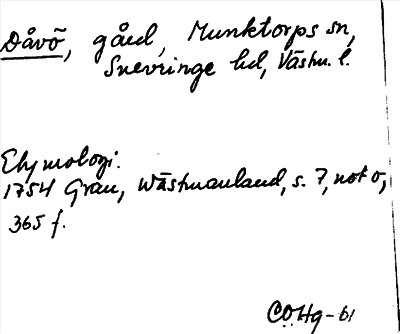 Dåvö, gård, Munktorps sn,
Snevringe hd, Västm. l.
Etymologi.
1754 Grau, Wästmanland, s. 7, not o,
365 f.
CÖHg-61